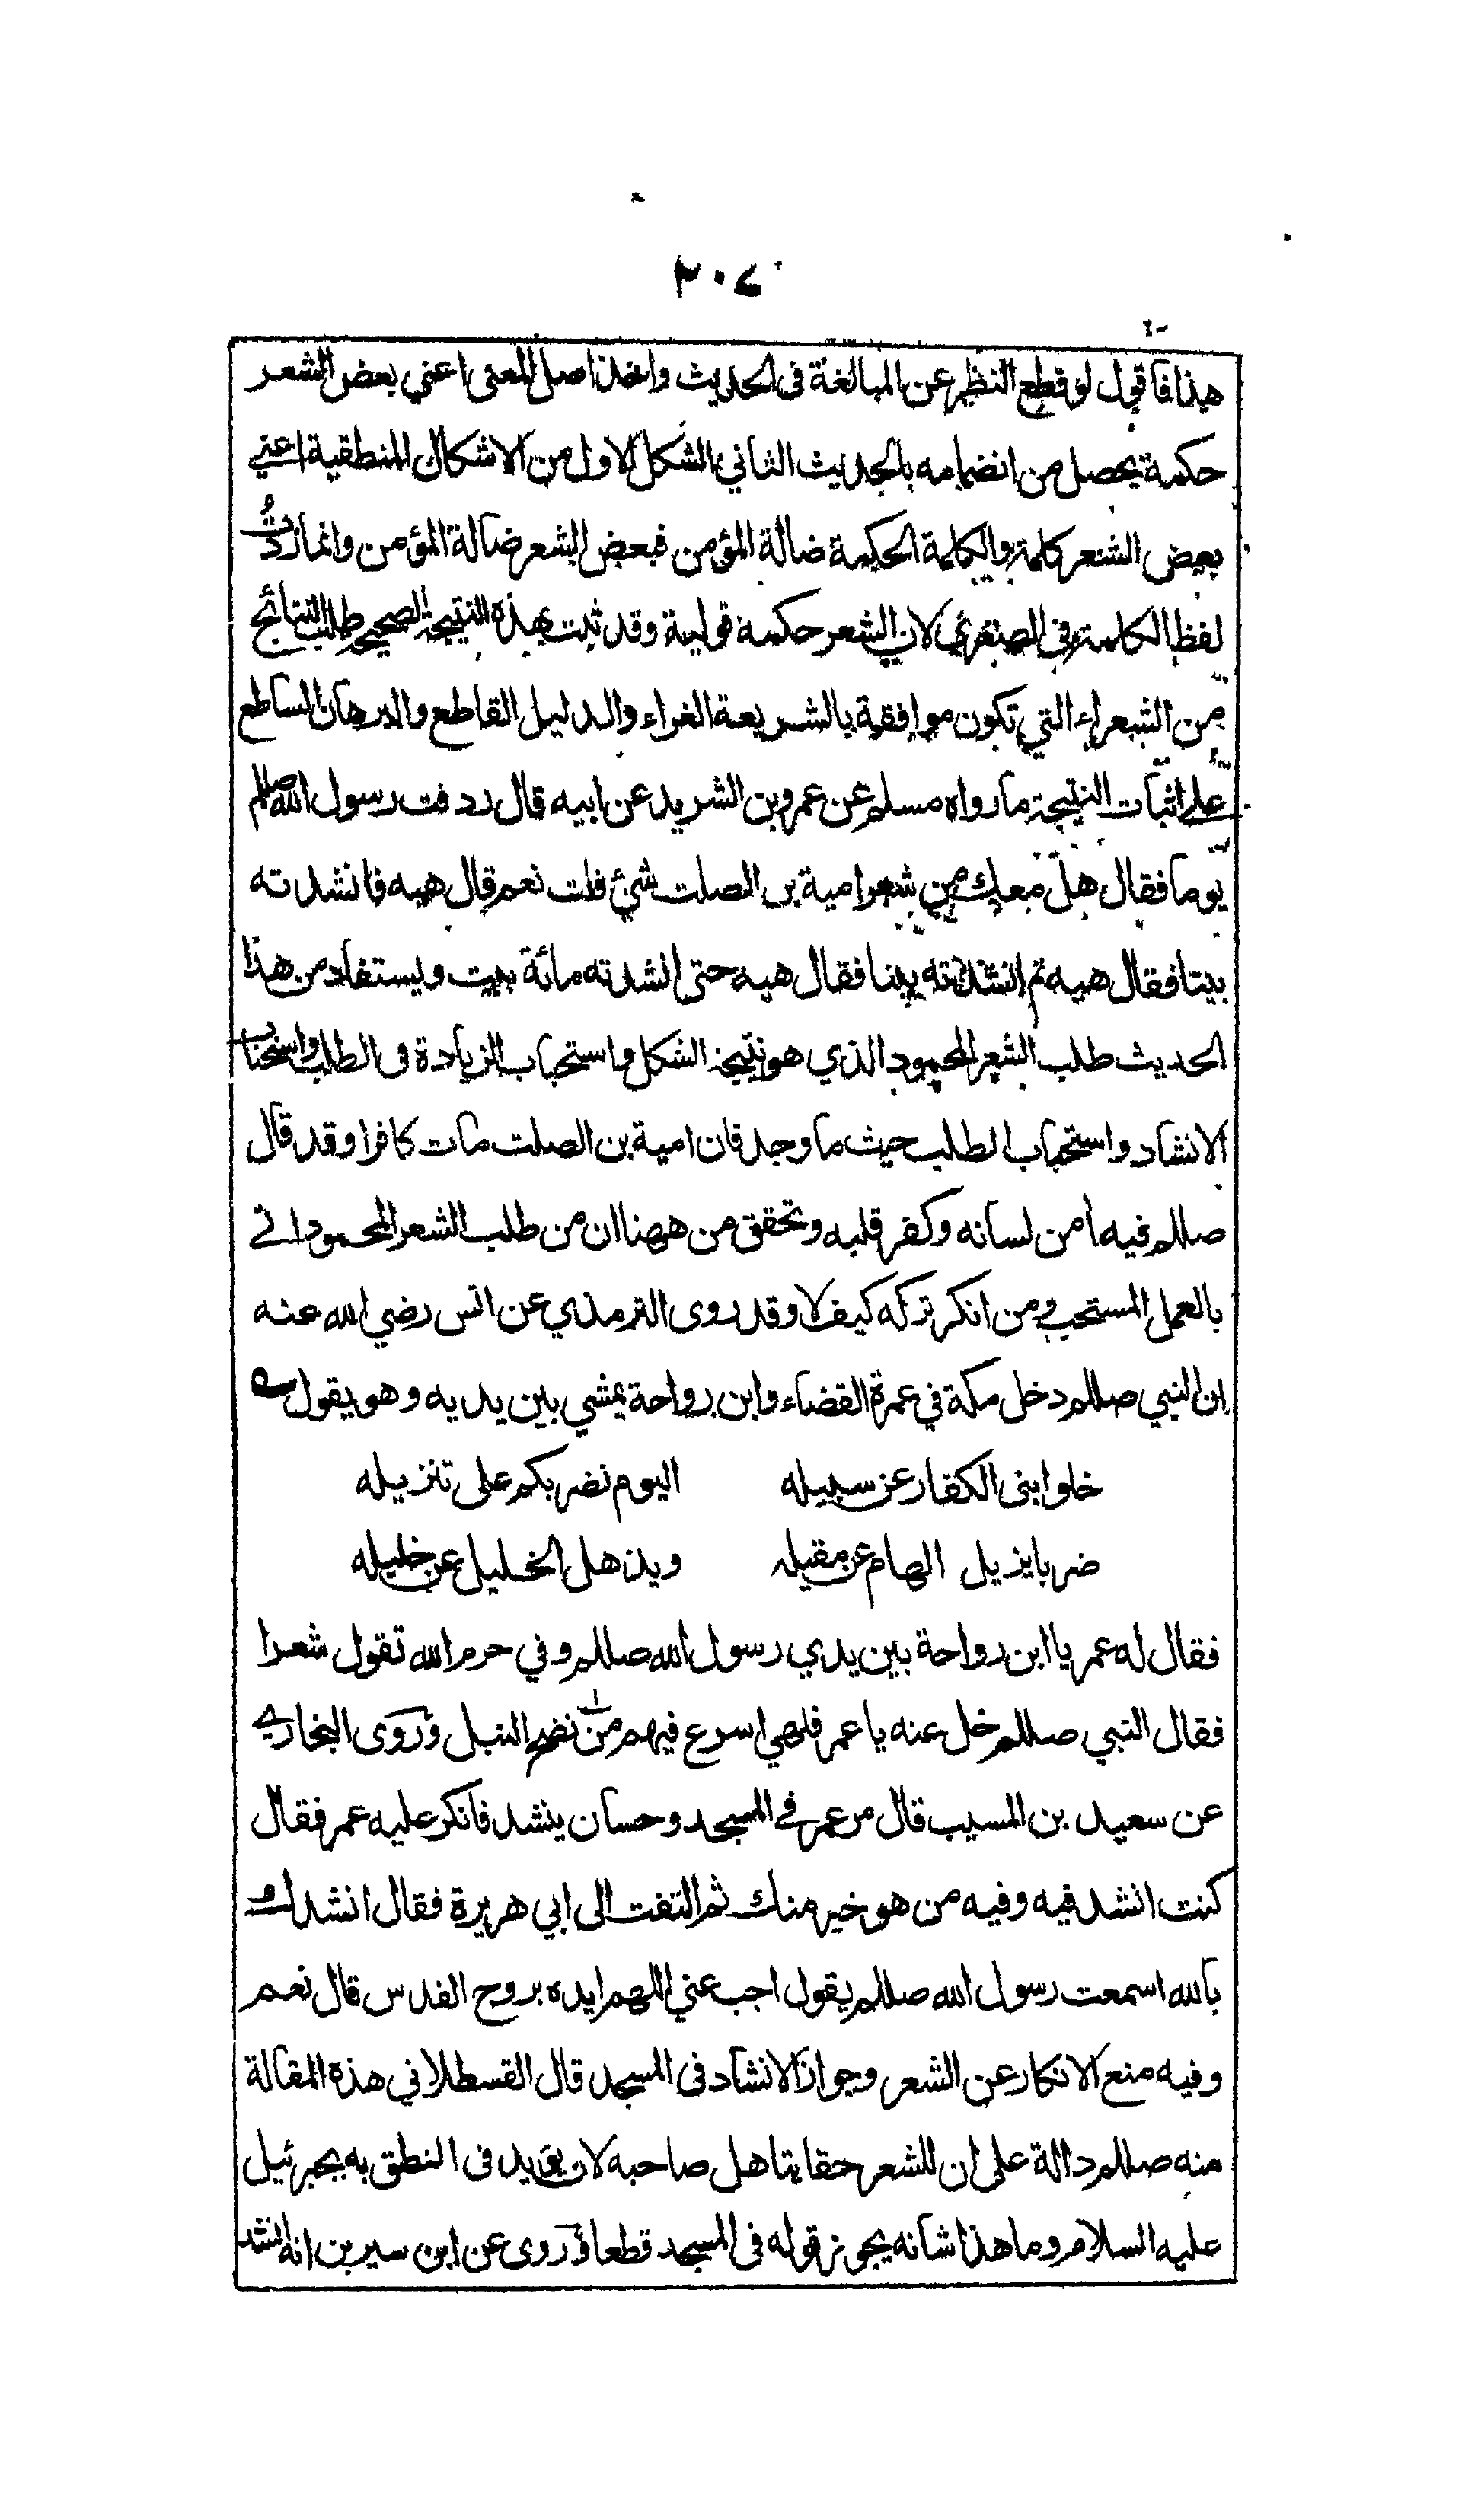 ٢٠٧
هذا فاقول لو قطع النظر عن المبالغة فى الحديث واخذ اصل المعنى اعني بعض الشعر
حكمة يحصل من انضمامه بالحديث الثاني الشكل الاول من الاشكال المنطقية اعني
بعض الشعر كلمة والكلمة الحكمة ضالة المؤمن فبعض الشعر ضالة المؤمن وانما زدتُ
لفظ الكلمة فى الصغرى لان الشعر حكمة قولية وقد ثبت بهذه النتيجة الصحيحة طلب النتائج
من الشعراء التي تكون موافقة بالشريعة الغراء والدليل القاطع والبرهان الساطع
على اثبات النتيجة ما رواه مسلم عن عمرو بن الشريد عن ابيه قال ردفت رسول الله صللم
يوما فقال هل معك من شعر امية بن الصلت شئ قلت نعم قال هيه فانشدته
بيتا فقال هيه ثم انشدته بيتا فقال هيه حتى انشدته مائة بيت ويستفاد من هذا
الحديث طلب الشعر المحمود الذي هو نتيجة الشكل واستحباب الزيادة فى الطلب واستحباب
الانشاد واستحباب الطلب حيث ما وجد فان امية بن الصلت مات كافرا وقد قال
صللم فيه أمن لسانه وكفر قلبه وتحقق من ههنا ان من طلب الشعر المحمود اتى
بالعمل المستحب ومن انكر تركه كيف لا وقد روى الترمذي عن انس رضي الله عنه
ان النبي صللم دخل مكة في عمرة القضاء وابن رواحة يمشي بين يديه وهو يقول
خلوا بنى الكفار عن سبيله اليوم نضربكم على تنزيله
ضربا يزيل الهام عن مقيله ويذهل الخليل عن خليله
فقال له عمر يا ابن رواحة بين يدي رسول الله صللم وفي حرم الله تقول شعرا
فقال النبي صللم خل عنه يا عمر فلهي اسرع فيهم من نضح النبل وروى البخاري
عن سعيد بن المسيب قال مر عمر في المسجد وحسان ينشد فانكر عليه عمر فقال
كنت انشد فيه وفيه من هو خير منك ثم التفت الى ابي هريرة فقال انشدك
بالله اسمعت رسول الله صللم يقول اجب عني اللهم ايده بروح القدس قال نعم
وفيه منع الانكار عن الشعر وجواز الانشاد فى المسجد قال القسطلاني هذه المقالة
منه صللم دالة على ان للشعر حقا يتاهل صاحبه لان يؤيد فى النطق به بجبرئيل
عليه السلام وما هذا شانه يجوز قوله فى المسجد قطعا وروى عن ابن سيرين انه انشد